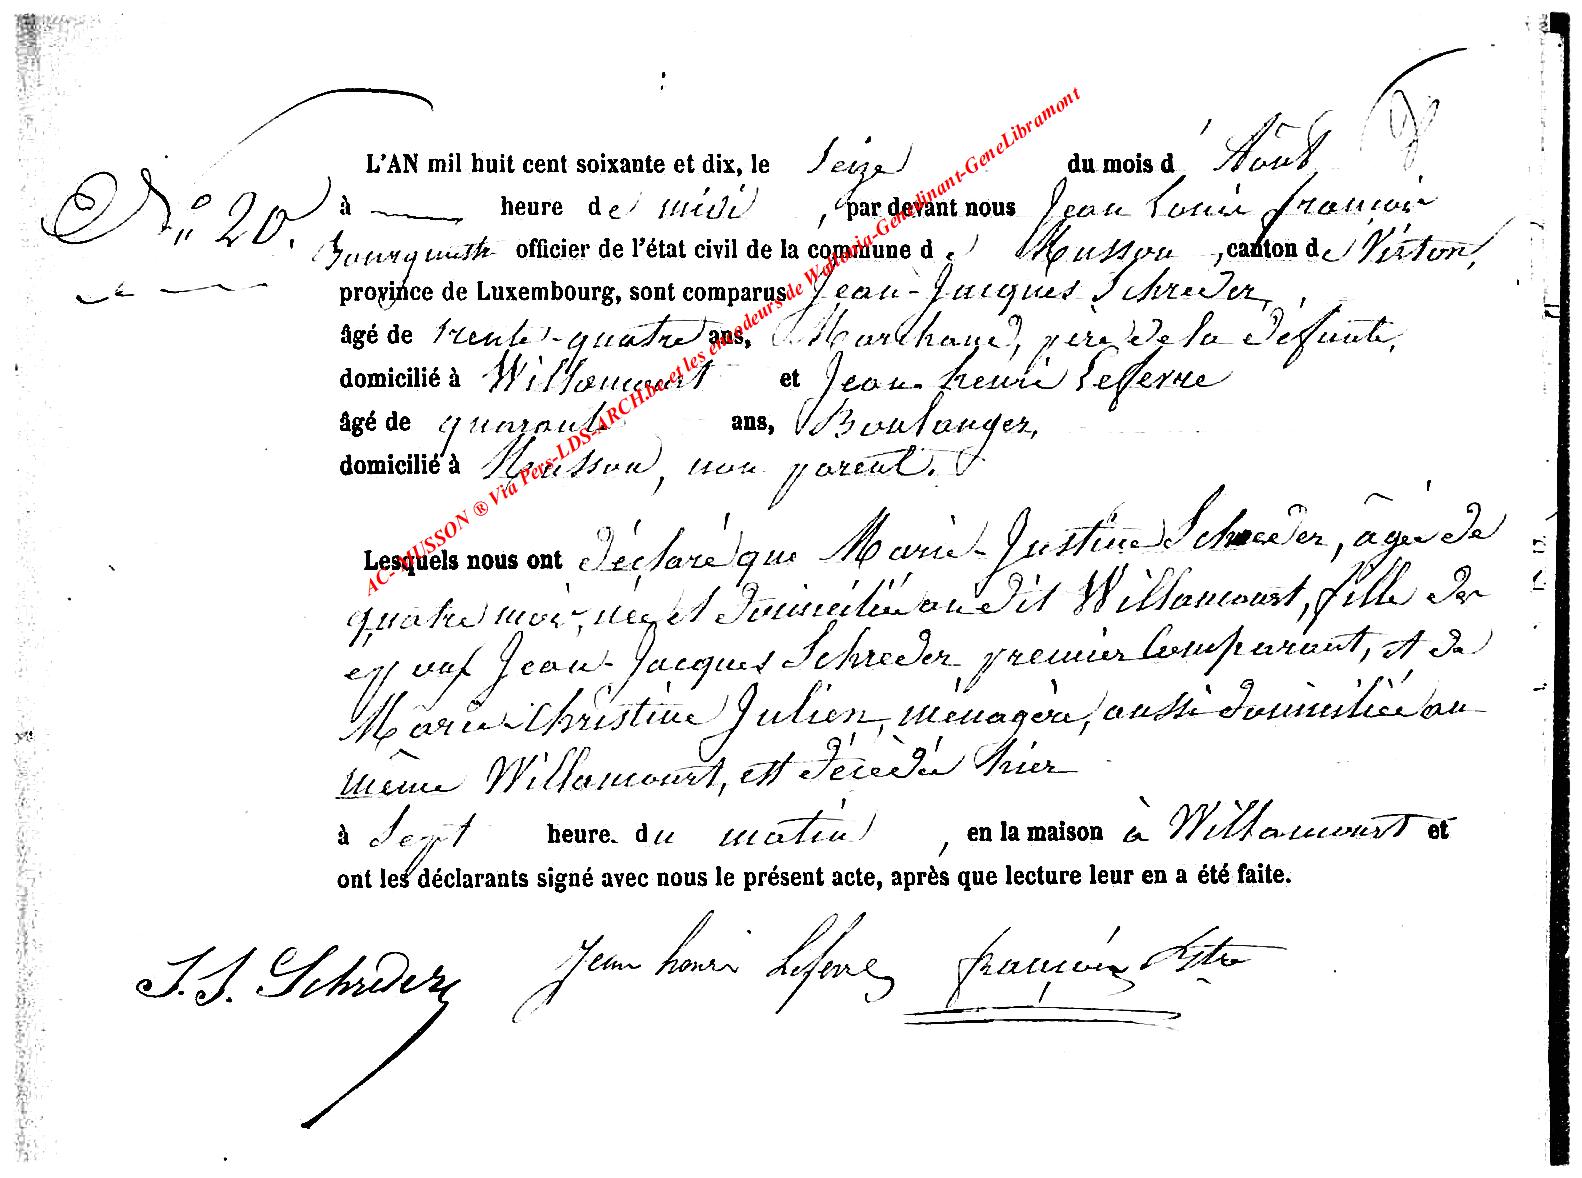 L'AN mil huit cent soixante et dix, le Seize du mois d' Août
N° 20.
à heure de midi, par devant nous Jean Louis françois
officier de l'état civil de la commune de Musson, canton de Virton,
province de Luxembourg, sont comparus Jean-Jacques Schreder,
âgé de trente-quatre ans, Marchand, père de la défunte,
domicilié à Willancourt et Jean-henri Lefevre
âgé de quarante ans, Boulanger,
domicilié à Musson, non parent.
Lesquels nous ont déclaré que Marie-Justine Schreder, âgée de
quatre mois, née et domiciliée au dit Willancourt, fille des
époux Jean-Jacques Schreder premier Comparant, et de
Marie-Christine Julien, ménagère, aussi domiciliée au
même Willancourt, est décédée hier
à Sept heure. du matin, en la maison à Willancourt et
ont les déclarants signé avec nous le présent acte, après que lecture leur en a été faite.
J. J. Schreder Jean henri Lefevre françois
AC-MUSSON ® Via Pers-LDS-ARCH.be et les encodeurs de Wallonia-Genealinant-GeneLibramont